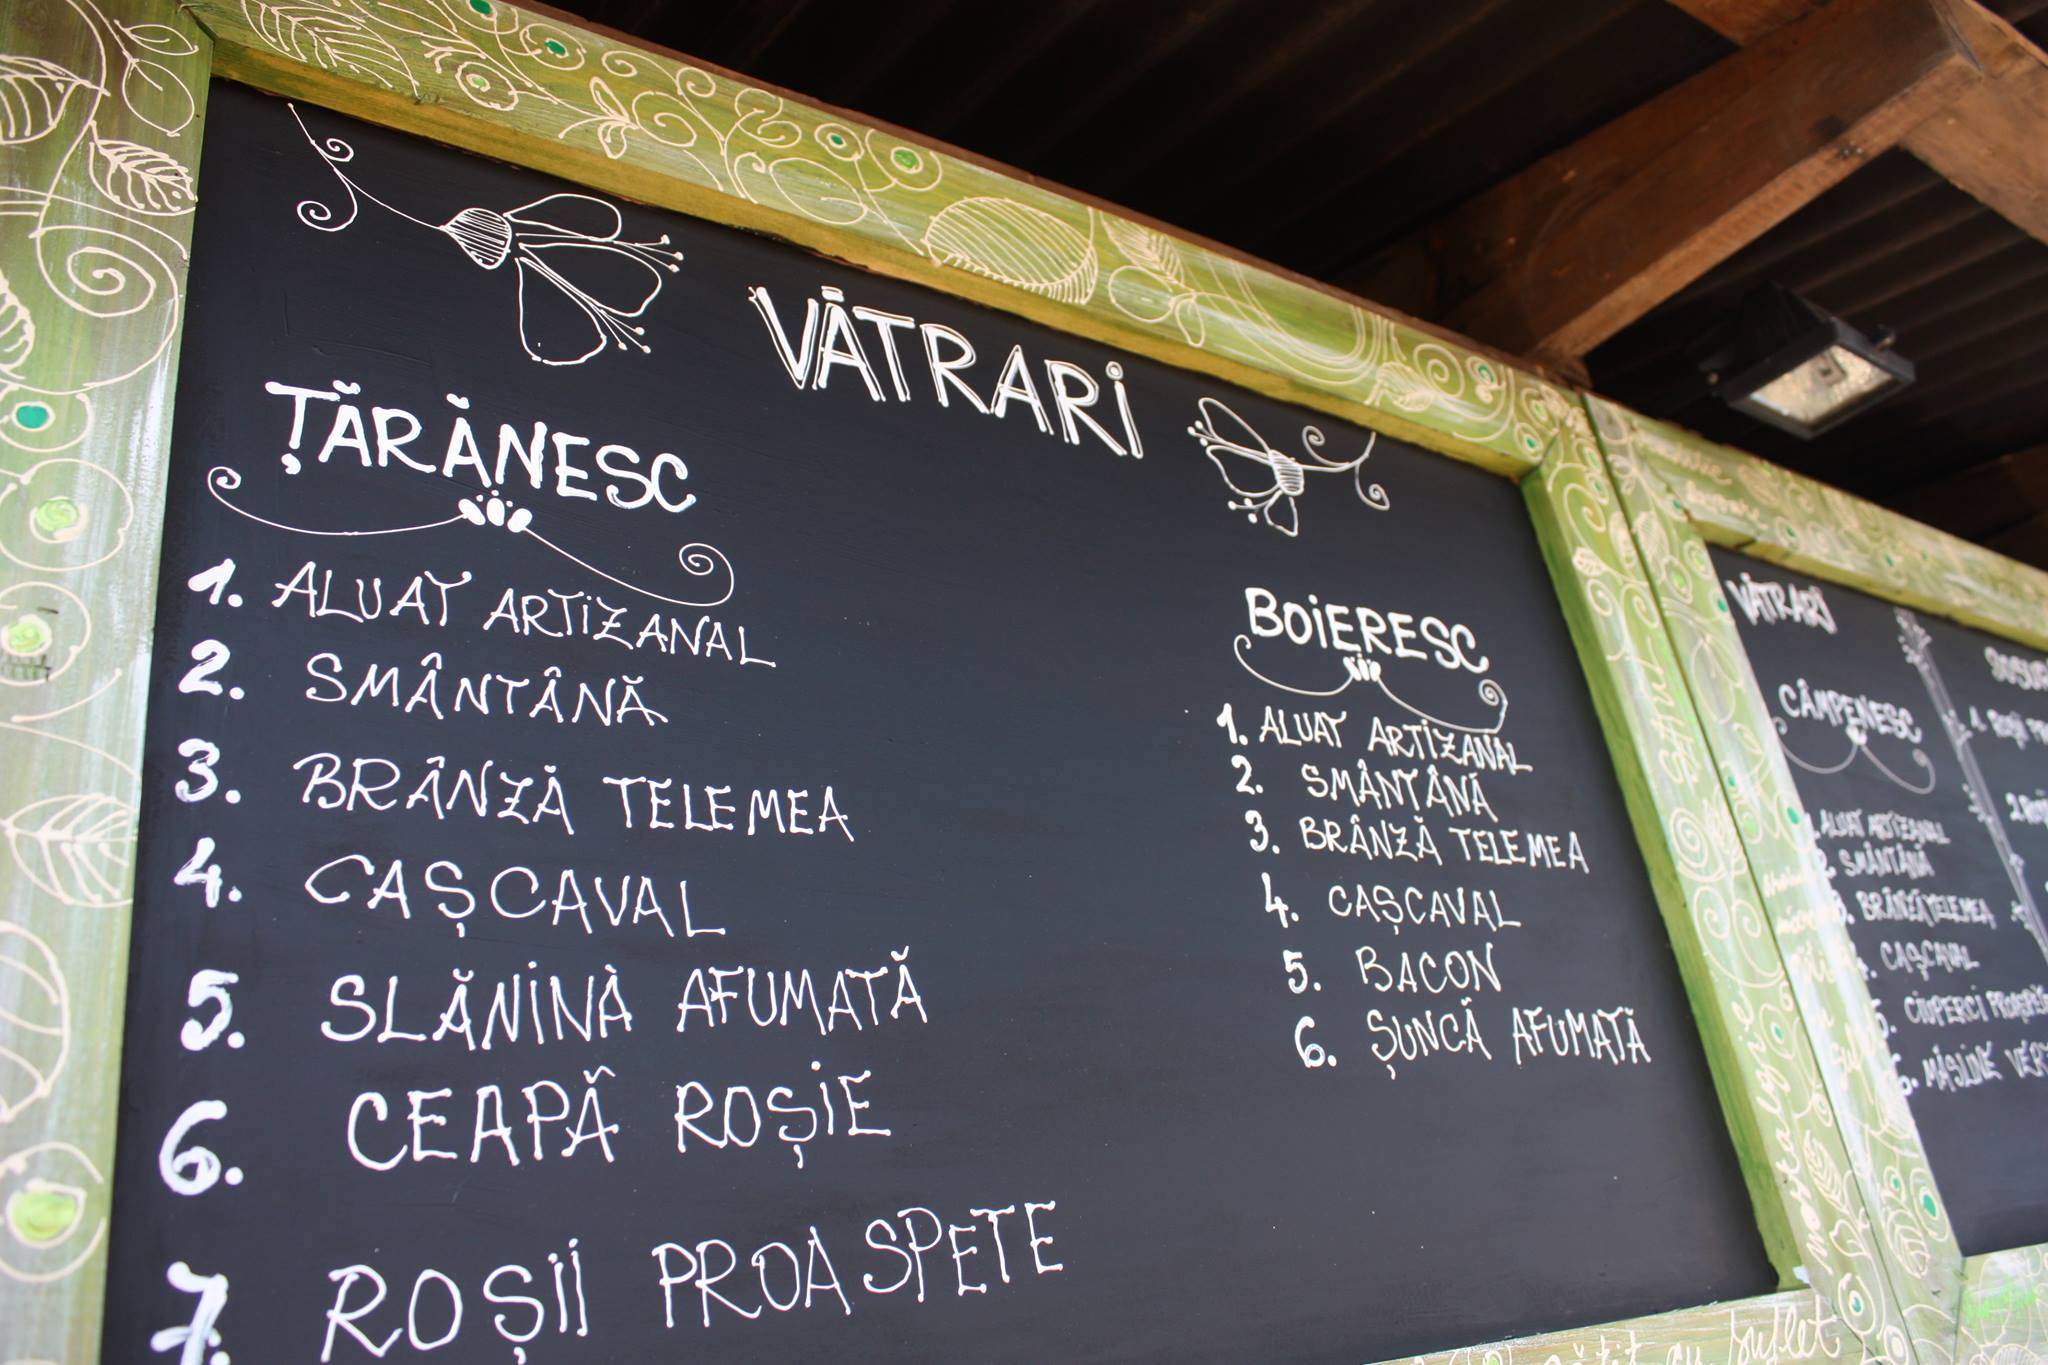 VĂTRARI
ȚĂRĂNESC
1. ALUAT ARTIZANAL
2. SMÂNTÂNĂ
3. BRÂNZĂ TELEMEA
4. CAȘCAVAL
5. SLĂNINĂ AFUMATĂ
6. CEAPĂ ROȘIE
7. ROȘII PROASPETE
BOIERESC
1. ALUAT ARTIZANAL
2. SMÂNTÂNĂ
3. BRÂNZĂ TELEMEA
4. CAȘCAVAL
5. BACON
6. ȘUNCĂ AFUMATĂ
VĂTRARI
CÂMPENESC
ALUAT ARTIZANAL
SMÂNTÂNĂ
BRÂNZĂ TELEMEA
CAȘCAVAL
5. CIUPERCI
6. MĂSLINE
1. ROȘII
2.
nostalgie
suflet